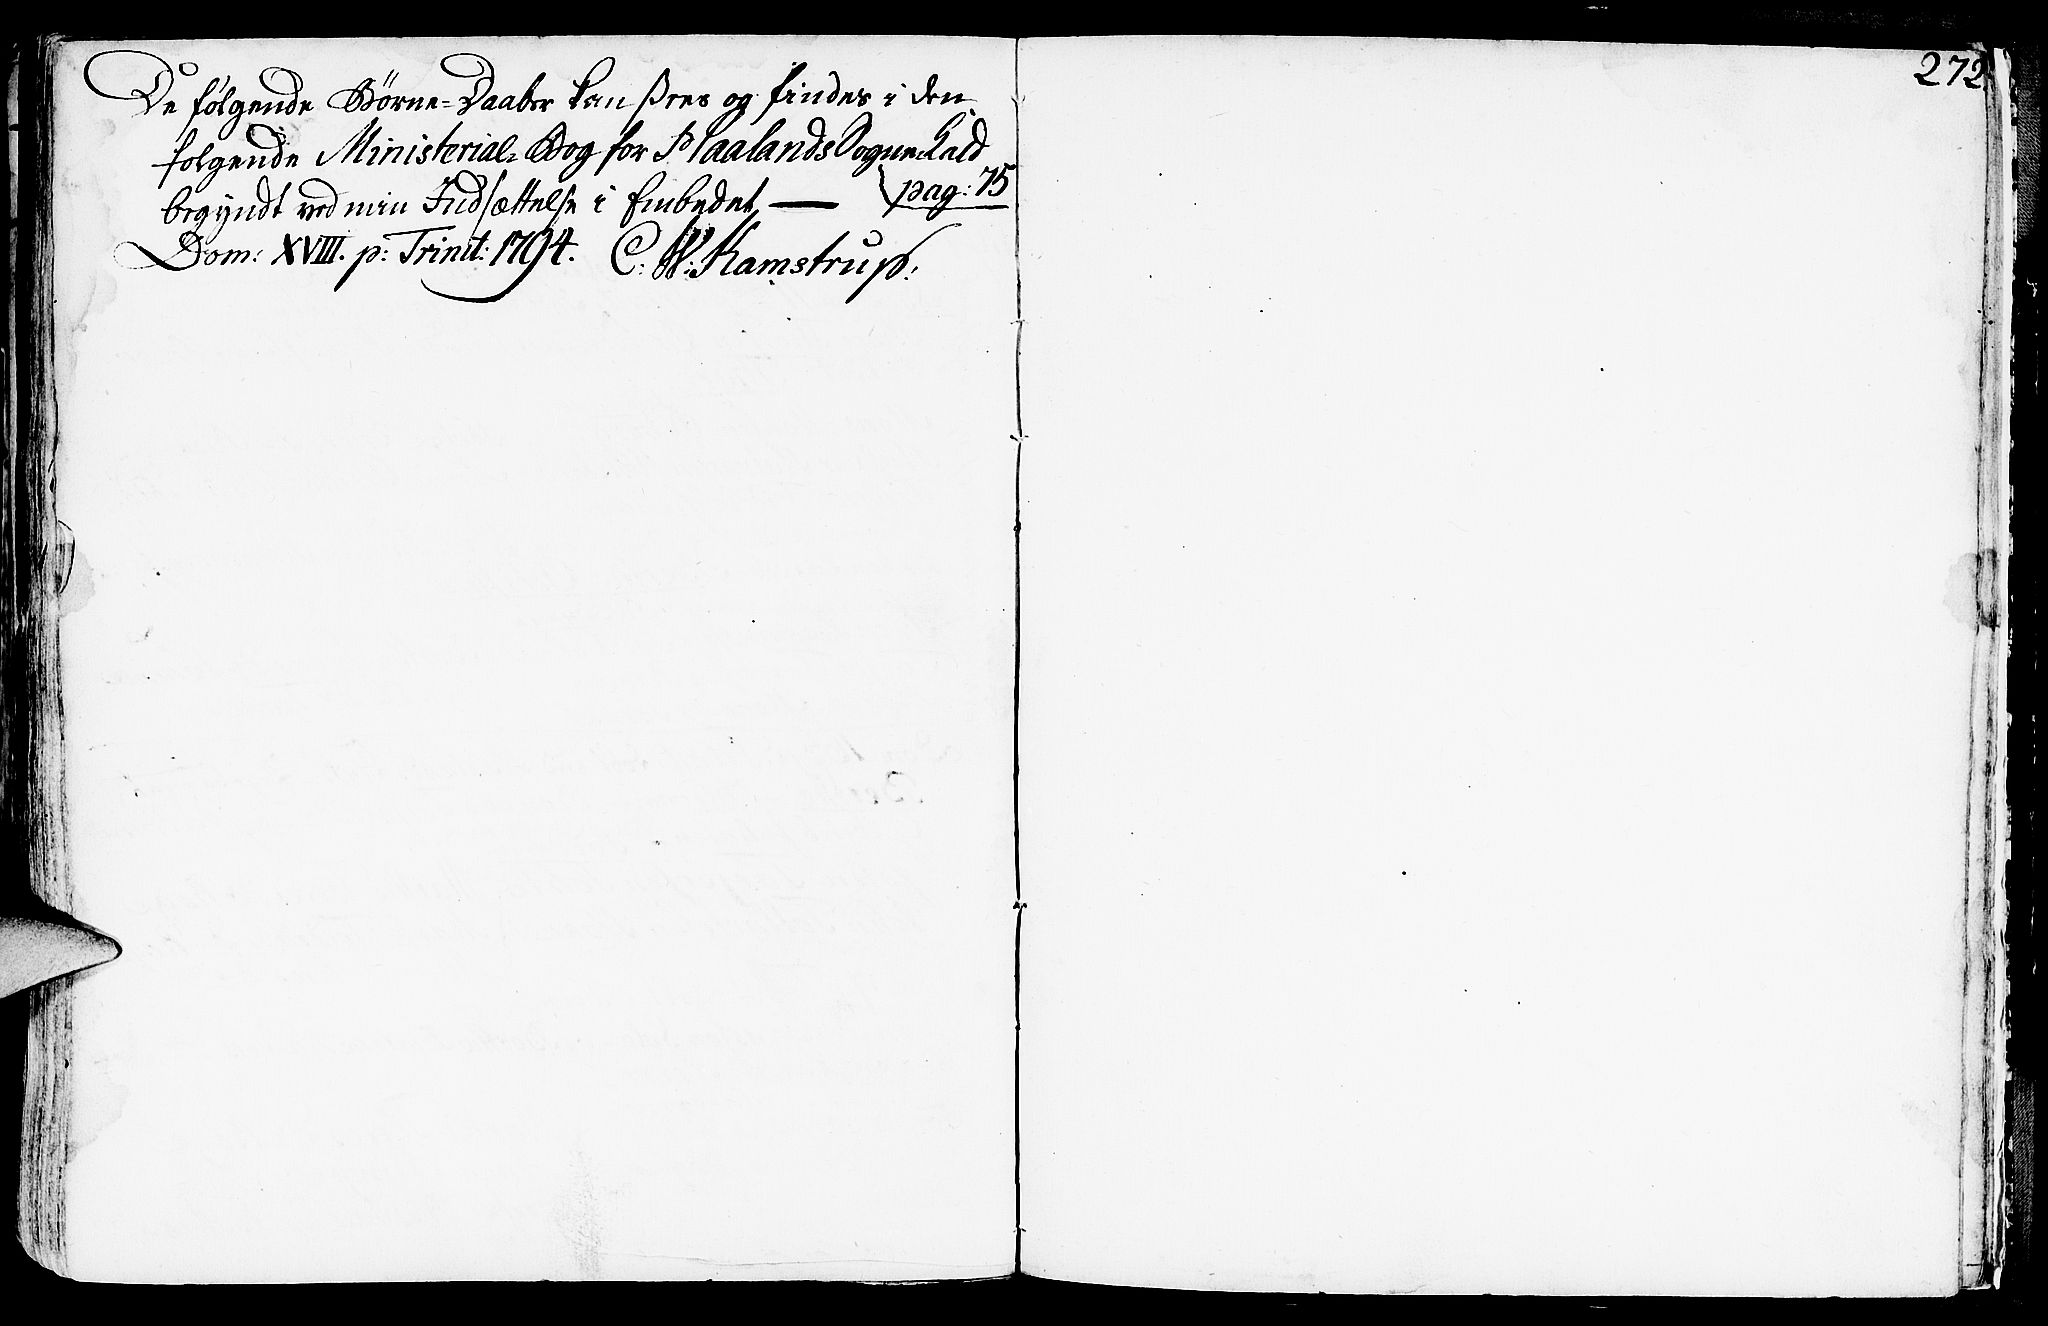 De følgende Børne-Daaber kan sees og findes i den
følgende Ministerial-Bog for Haalands Sogne-Kald
begyndt ved min Indsættelse i Embedet — pag: 75
Dom: XVIII. p: Trinit: 1794. C: W: Kamstrup:
272